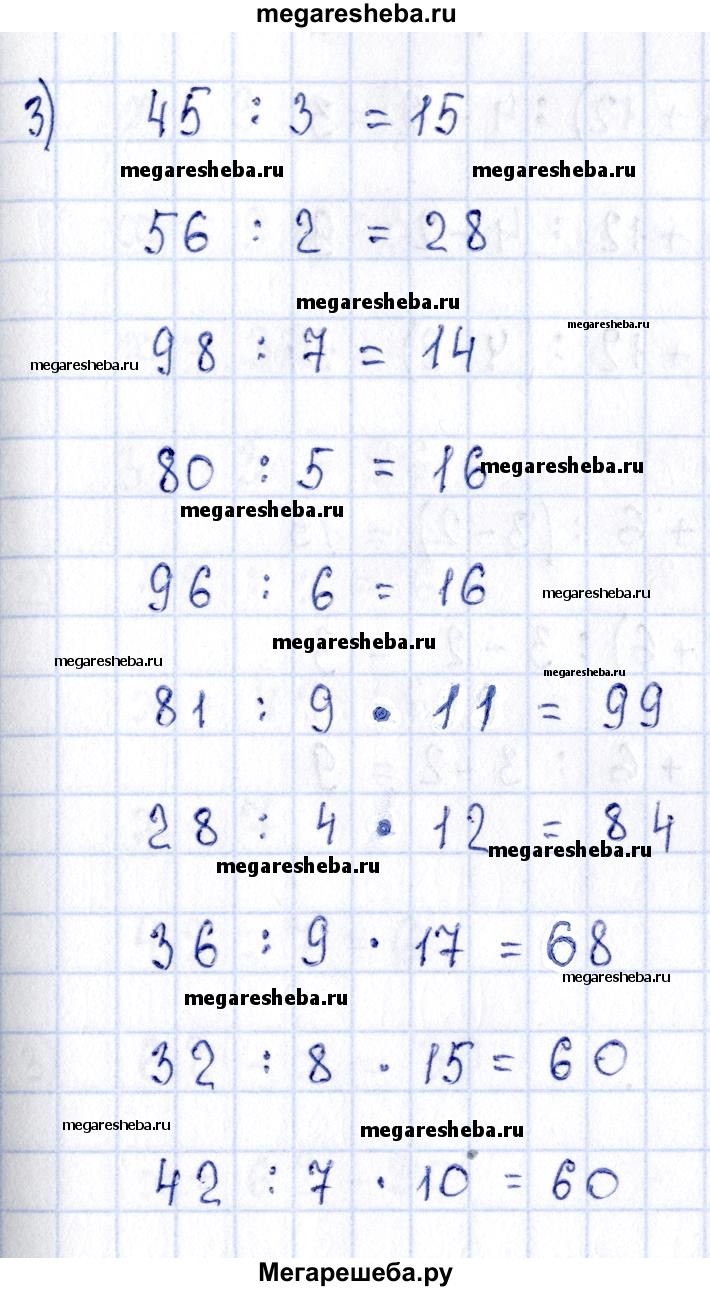 megaresheba.ru
3) 45 : 3 = 15
megaresheba.ru megaresheba.ru
56 : 2 = 28
megaresheba.ru
megaresheba.ru
98 : 7 = 14
megaresheba.ru
80 : 5 = 16
megaresheba.ru
megaresheba.ru
96 : 6 = 16
megaresheba.ru
megaresheba.ru
megaresheba.ru
megaresheba.ru
81 : 9 · 11 = 99
28 : 4 · 12 = 84
megaresheba.ru
megaresheba.ru
36 : 9 · 17 = 68
megaresheba.ru
megaresheba.ru
32 : 8 · 15 = 60
megaresheba.ru
megaresheba.ru
42 : 7 · 10 = 60
Мегарешеба.ру